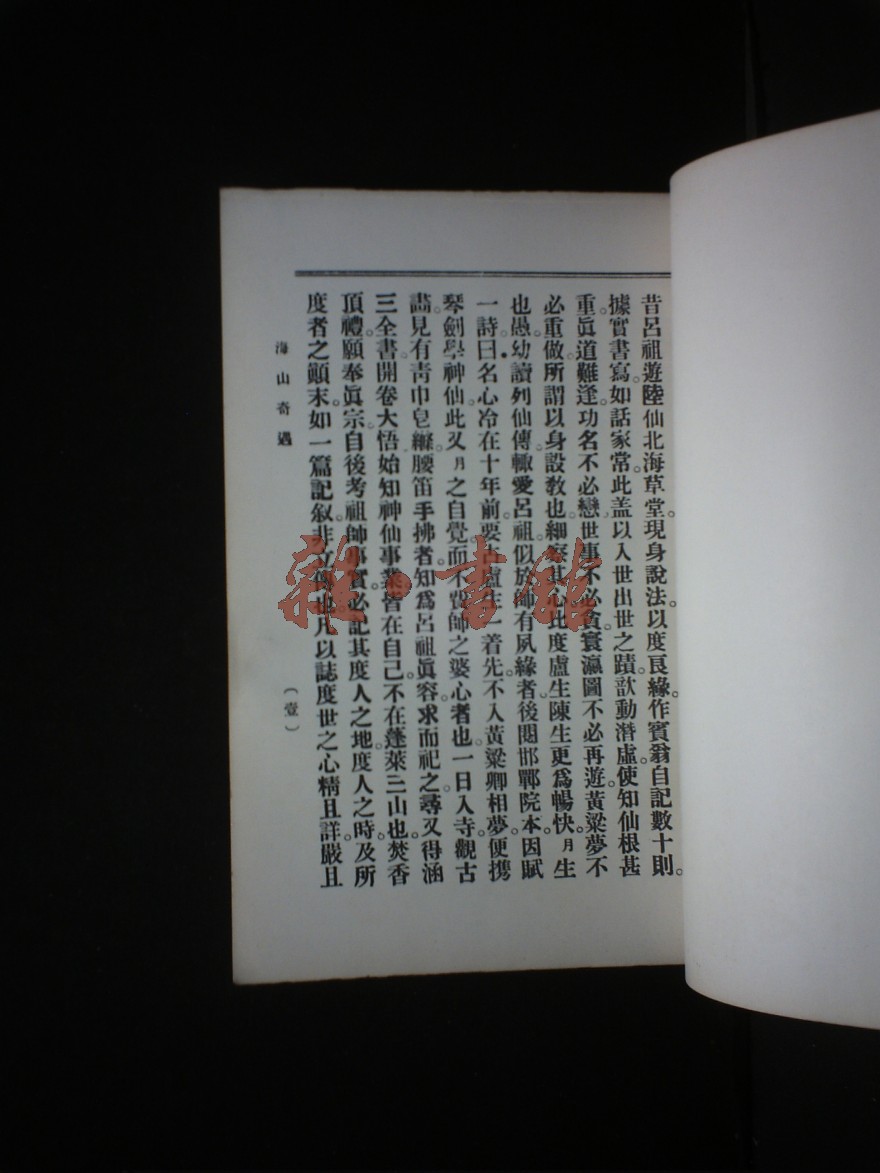 昔呂祖遊陸仙北海草堂。現身說法以度良緣。作賓翁自記數十則。
據實書寫。如話家常。此盖以入世出世之蹟。歆動潛虛。使知仙根甚
重。眞道難逢。功名不必戀。世事不必貪。寰瀛圖不必再遊。黃粱夢不
必重做。所謂以身設敎也。細察其心。比度盧生陳生更爲暢快。月生
也愚。幼讀列仙傳。輙愛呂祖。似於師有夙緣者。後閱邯鄲院本。因賦
一詩曰。名心冷在十年前。要占盧生一着先。不入黃粱卿相夢。便携
琴劍學神仙。此又月之自覺而不負師之婆心者也。一日入寺觀古
畵。見有靑巾皂縧。腰笛手拂者。知爲呂祖眞容。求而祀之。尋又得涵
三全書。開卷大悟。始知神仙事業。皆在自己。不在蓬萊三山也。焚香
頂禮。願奉眞宗。自後考祖師事實。必記其度人之地。度人之時。及所
度者之顚末。如一篇記叙。非立傳也。凡以誌度世之心。精且詳。嚴且
海山奇遇
（壹）
雜·書館